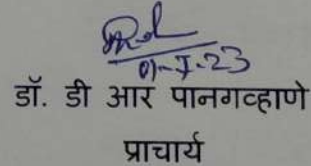 01-7-23
डॉ. डी आर पानगव्हाणे
प्राचार्य